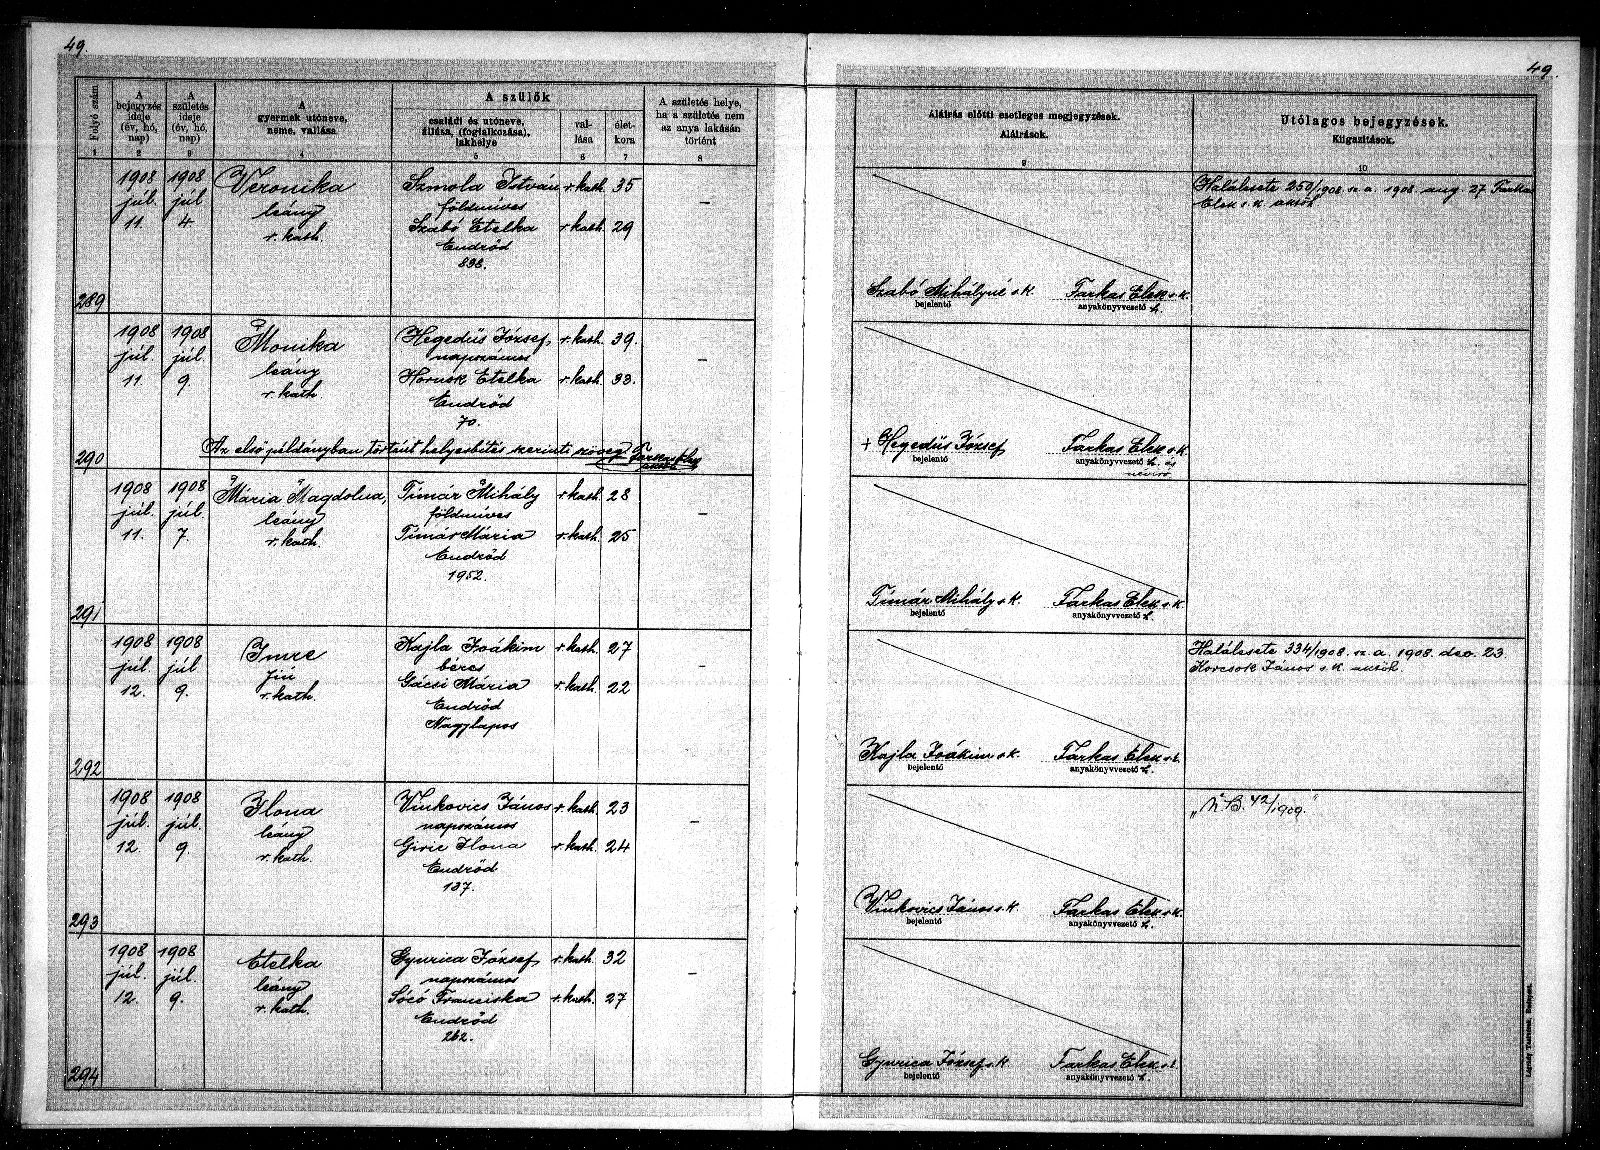 49.
49.
Folyó szám
A bejegyzés ideje (év, hó, nap)
A születés ideje (év, hó, nap)
A gyermek utóneve, neme, vallása
A szülők
családi és utóneve, állása, (foglalkozása), lakhelye
vallása
életkora
A születés helye, ha a születés nem az anya lakásán történt
Aláírás előtti esetleges megjegyzések.
Aláírások.
Utólagos bejegyzések.
Kiigazítások.
1 2 3 4 5 6 7 8 9 10
289
1908 júl. 11.
1908 júl 4
Veronika
leány
r. kath.
Szmola István r. kath. 35
földmíves
Szabó Etelka r. kath. 29
Endrőd
838.
–
Szabó Mihályné s.k.
bejelentő
Farkas Elek s.k.
anyakönyvvezető h.
Halálesete 250/1908. sz. a. 1908. aug. 27 Farkas
Elek s. k. akvh.
290
1908 júl. 11.
1908 júl. 9.
Monika
leány
r. kath
Hegedüs József r. kath. 39.
napszámos
Hornok Etelka r. kath. 33.
Endrőd
70.
–
Az első példányban történt helyesbítés szerinti szöveg.
Farkas Elek
+ Hegedüs József
bejelentő
Farkas Elek s.k.
anyakönyvvezető h. és
névíró
291
1908 júl. 11.
1908 júl. 7.
Mária Magdolna,
leány
r. kath.
Tímár Mihály r. kath. 28
földmíves
Tímár Mária r. kath. 25
Endrőd
1952.
–
Tímár Mihály s.k.
bejelentő
Farkas Elek s.k.
anyakönyvvezető h.
292
1908 júl. 12.
1908 júl. 9.
Imre
fiú
r. kath.
Kajla Joákim r. kath. 27
béres
Gácsi Mária r. kath. 22
Endrőd
Nagylapos
–
Kajla Joákim s.k.
bejelentő
Farkas Elek s.k.
anyakönyvvezető h.
Halálesete 334/1908. sz. a. 1908. dec. 23.
Korcsok János s.k. akvh.
293
1908 júl. 12.
1908 júl. 9.
Ilona
leány
r. kath.
Vinkovics János r. kath. 23
napszámos
Giric Ilona r. kath. 24
Endrőd
137.
–
Vinkovics János s.k.
bejelentő
Farkas Elek s.k.
anyakönyvvezető h.
„N. B. 42/1909."
294
1908 júl. 12.
1908 júl. 9.
Etelka
leány
r. kath.
Gyurica József r. kath. 32
napszámos
Sócó Franciska r. kath. 27
Endrőd
262.
–
Gyurica József s.k.
bejelentő
Farkas Elek s.k.
anyakönyvvezető h.